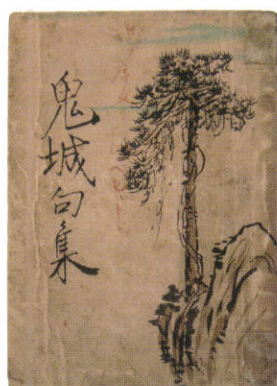 鬼城句集